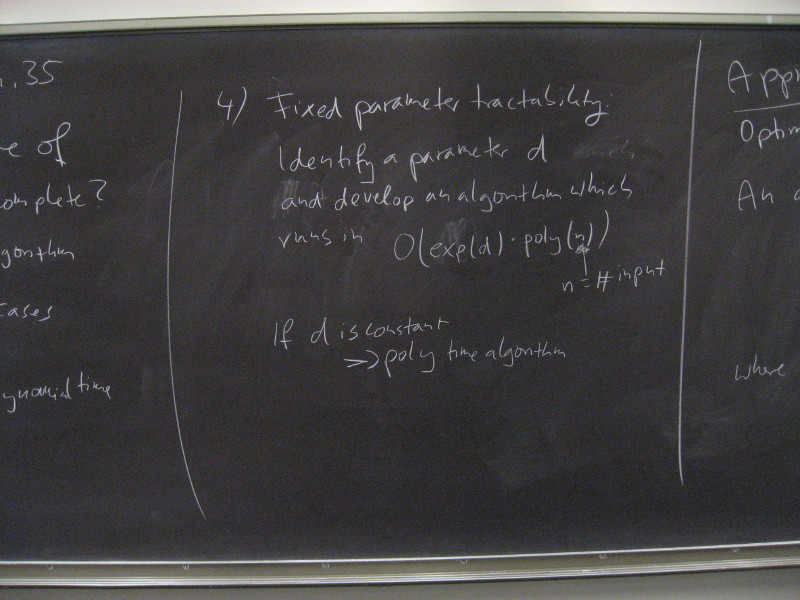 . 35
of
complete?
gorithm
cases
ynomial time
4) Fixed parameter tractability:
Identify a parameter d
and develop an algorithm which
runs in O(exp(d) · poly(n))
n = # input
If d is constant
=> poly time algorithm
App
Optim
An a
where